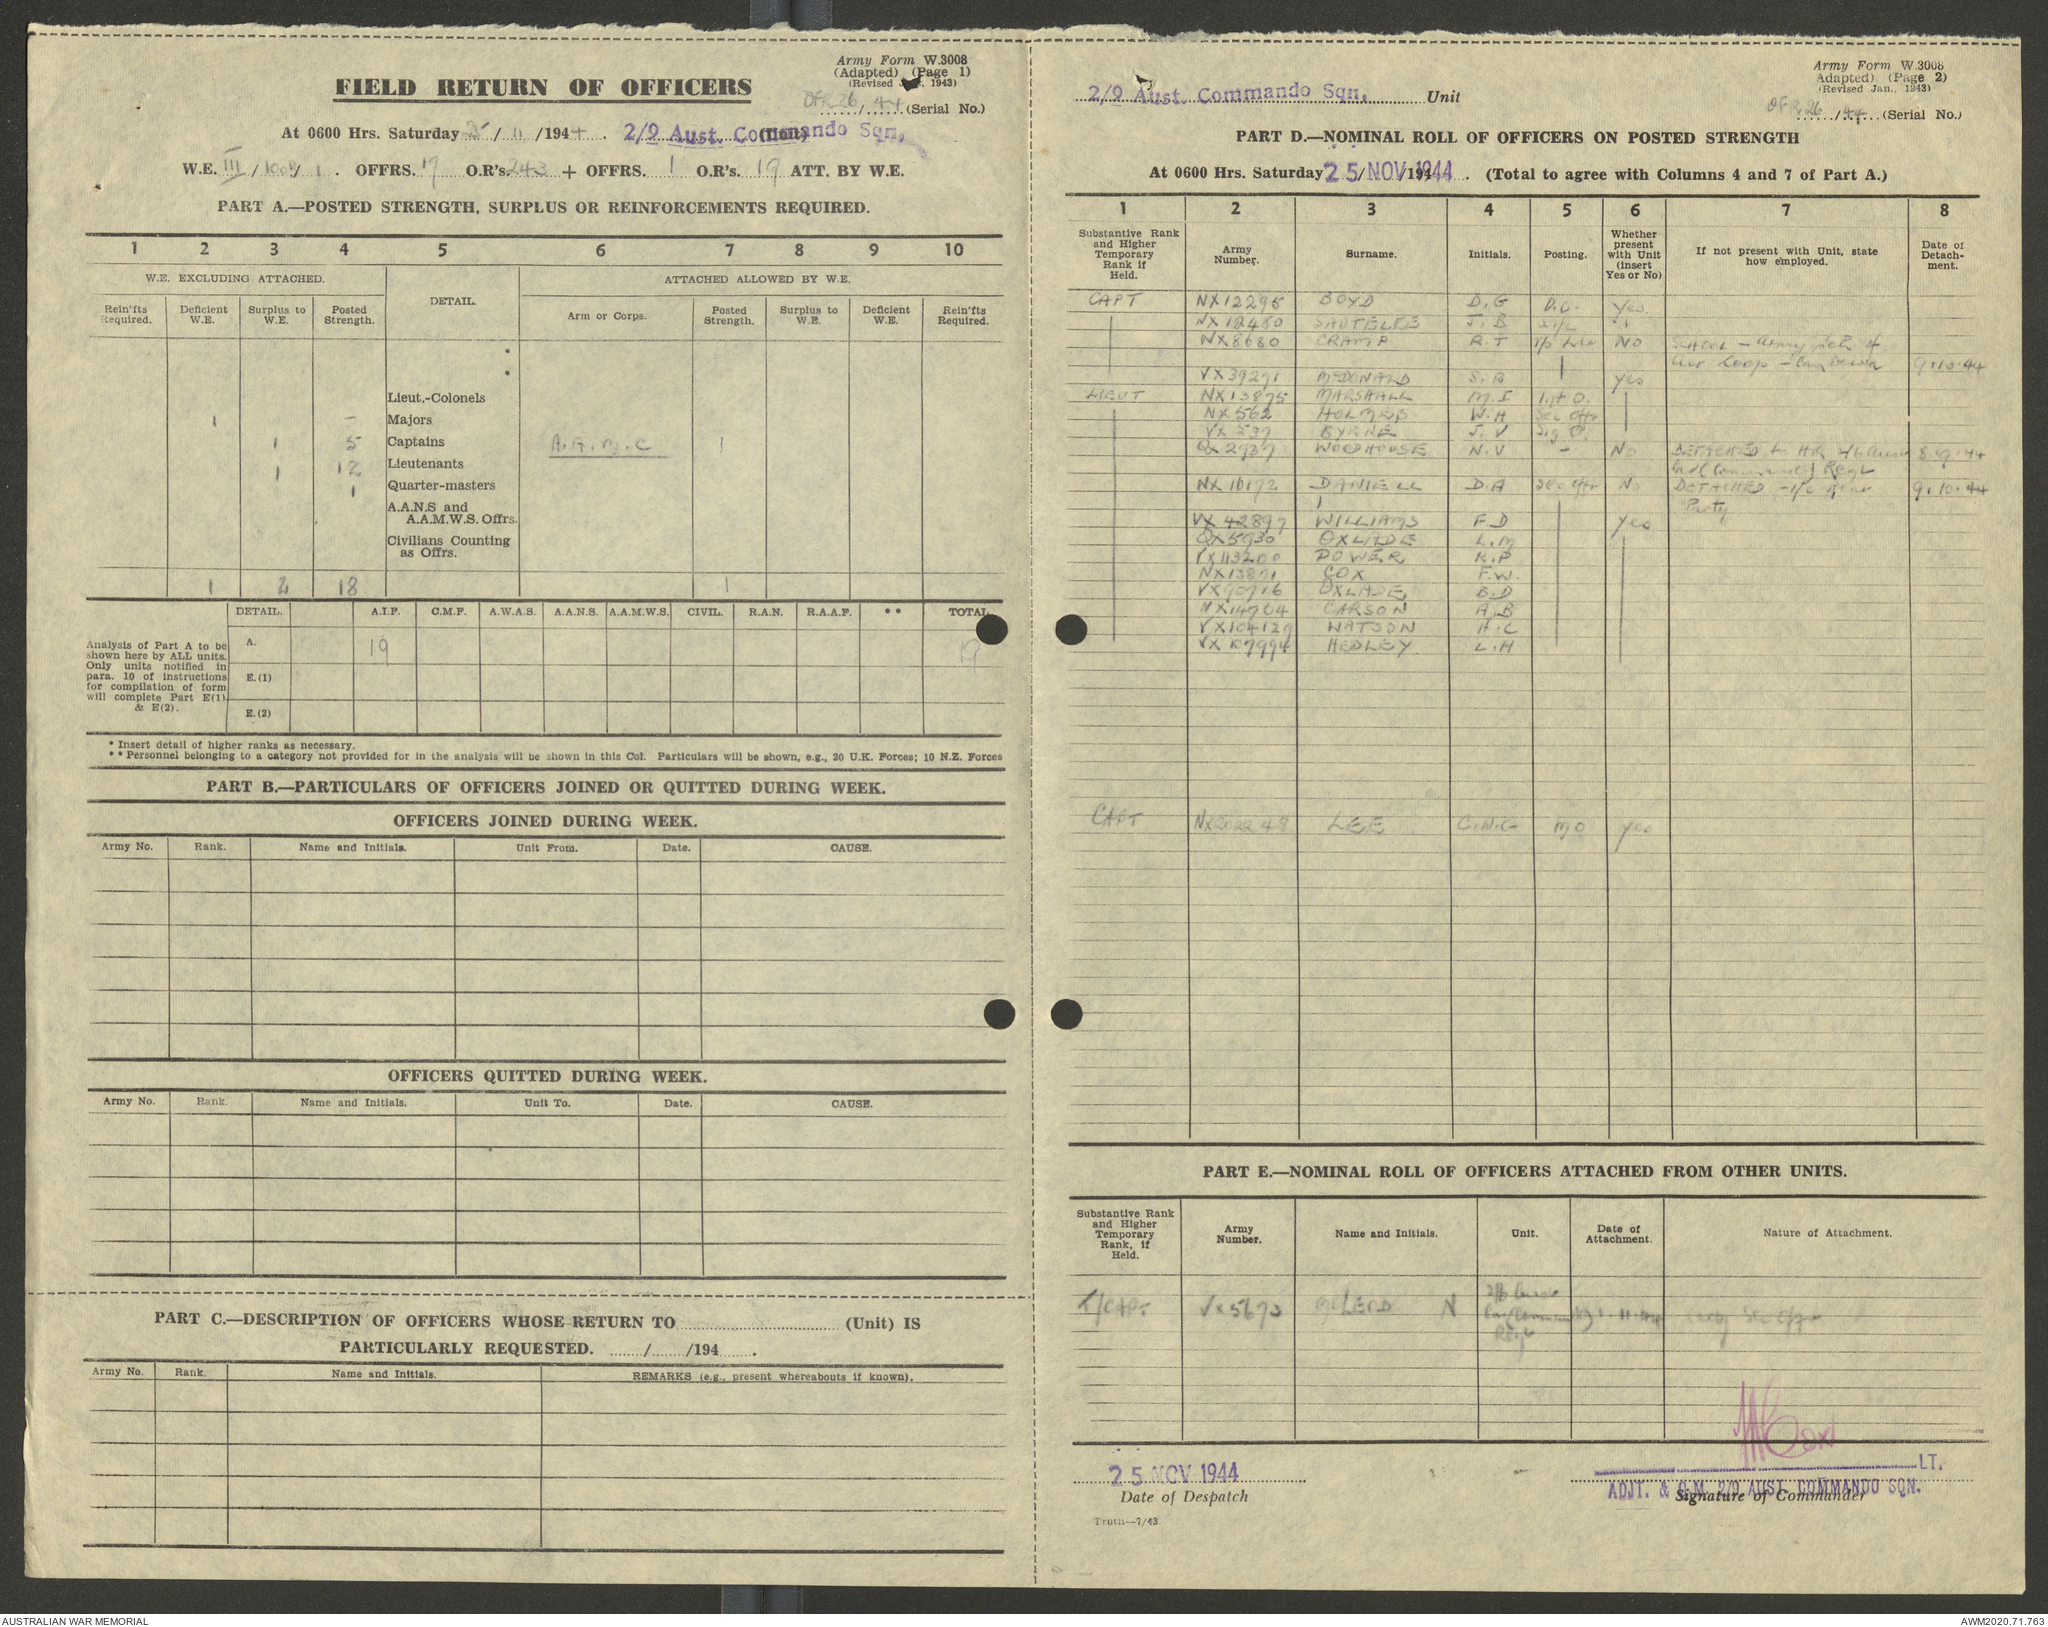 Army Form W.3008
(Adapted) (Page 1)
(Revised Jan., 1943)
FIELD RETURN OF OFFICERS
OFR 26 / 44 (Serial No.)
At 0600 Hrs. Saturday 25 / 11 / 1944. 2/9 Aust. Commando Sqn. (Unit)
W.E. III / 1008 / 1. OFFRS. 17 O.R's. 243 + OFFRS. 1 O.R's. 19 ATT. BY W.E.
PART A.—POSTED STRENGTH, SURPLUS OR REINFORCEMENTS REQUIRED.
1 2 3 4 5 6 7 8 9 10
W.E. EXCLUDING ATTACHED. DETAIL. ATTACHED ALLOWED BY W.E.
Rein'fts Required. Deficient W.E. Surplus to W.E. Posted Strength. Arm or Corps. Posted Strength. Surplus to W.E. Deficient W.E. Rein'fts Required.
*
*
Lieut.-Colonels
1 – Majors
1 5 Captains A.A.M.C 1
1 12 Lieutenants
1 Quarter-masters
A.A.N.S and
A.A.M.W.S. Offrs.
Civilians Counting
as Offrs.
1 2 18 1
DETAIL. A.I.F. C.M.F. A.W.A.S. A.A.N.S. A.A.M.W.S. CIVIL. R.A.N. R.A.A.F. ** TOTAL.
Analysis of Part A to be
shown here by ALL units.
Only units notified in
para. 10 of instructions
for compilation of form
will complete Part E(1)
& E(2).
A. 19 19
E.(1)
E.(2)
* Insert detail of higher ranks as necessary.
** Personnel belonging to a category not provided for in the analysis will be shown in this Col. Particulars will be shown, e.g., 20 U.K. Forces; 10 N.Z. Forces
PART B.—PARTICULARS OF OFFICERS JOINED OR QUITTED DURING WEEK.
OFFICERS JOINED DURING WEEK.
Army No. Rank. Name and Initials. Unit From. Date. CAUSE.
OFFICERS QUITTED DURING WEEK.
Army No. Rank. Name and Initials. Unit To. Date. CAUSE.
PART C.—DESCRIPTION OF OFFICERS WHOSE RETURN TO (Unit) IS
PARTICULARLY REQUESTED. / /194 .
Army No. Rank. Name and Initials. REMARKS (e.g., present whereabouts if known).
Army Form W.3008
Adapted) (Page 2)
(Revised Jan., 1943)
2/9 Aust. Commando Sqn. Unit
OFR 26 / 44 (Serial No.)
PART D.—NOMINAL ROLL OF OFFICERS ON POSTED STRENGTH
At 0600 Hrs. Saturday 25 NOV 1944 / /194 . (Total to agree with Columns 4 and 7 of Part A.)
1 2 3 4 5 6 7 8
Substantive Rank and Higher Temporary Rank if Held. Army Number. Surname. Initials. Posting. Whether present with Unit (insert Yes or No) If not present with Unit, state how employed. Date of Detach-ment.
CAPT NX12295 BOYD D.G O.C. Yes
NX12480 SAUTELLE J.B 2i/c
NX8680 CRAMP R.T No SCHOOL - Army Sch of
Air Coop - Canberra 9.10.44
VX39291 McDONALD S.B yes
LIEUT NX13875 MARSHALL M.I Int O.
NX562 HOLMES W.H Sec Offr
VX537 BYRNE J.V Sig O.
QX2737 WOODHOUSE N.V - No DETACHED to HQ 2/6 Aust 8.9.44
Cav (Commando) Regt
NX10172 DANIELL D.A Sec Offr No DETACHED - i/c rear 9.10.44
Party
VX42897 WILLIAMS F.D yes
QX5930 OXLADE L.M
VX113200 POWER K.P
NX13871 COX F.W.
VX90716 OXLADE B.D
NX14764 CARSON A.B
VX104129 WATSON H.C
VX107994 HEDLEY L.H
CAPT NX202248 LEE C.W.G MO yes
PART E.—NOMINAL ROLL OF OFFICERS ATTACHED FROM OTHER UNITS.
Substantive Rank and Higher Temporary Rank, if Held. Army Number. Name and Initials. Unit. Date of Attachment. Nature of Attachment.
T/CAPT VX5673 McLEOD N 2/6 Aust
Cav (Commando)
Regt
25 NOV 1944
Date of Despatch
LT.
ADJT. & Q.M. 2/9 AUST. COMMANDO SQN.
Signature of Commander
Truth—7/43
AUSTRALIAN WAR MEMORIAL
AWM2020.71.763